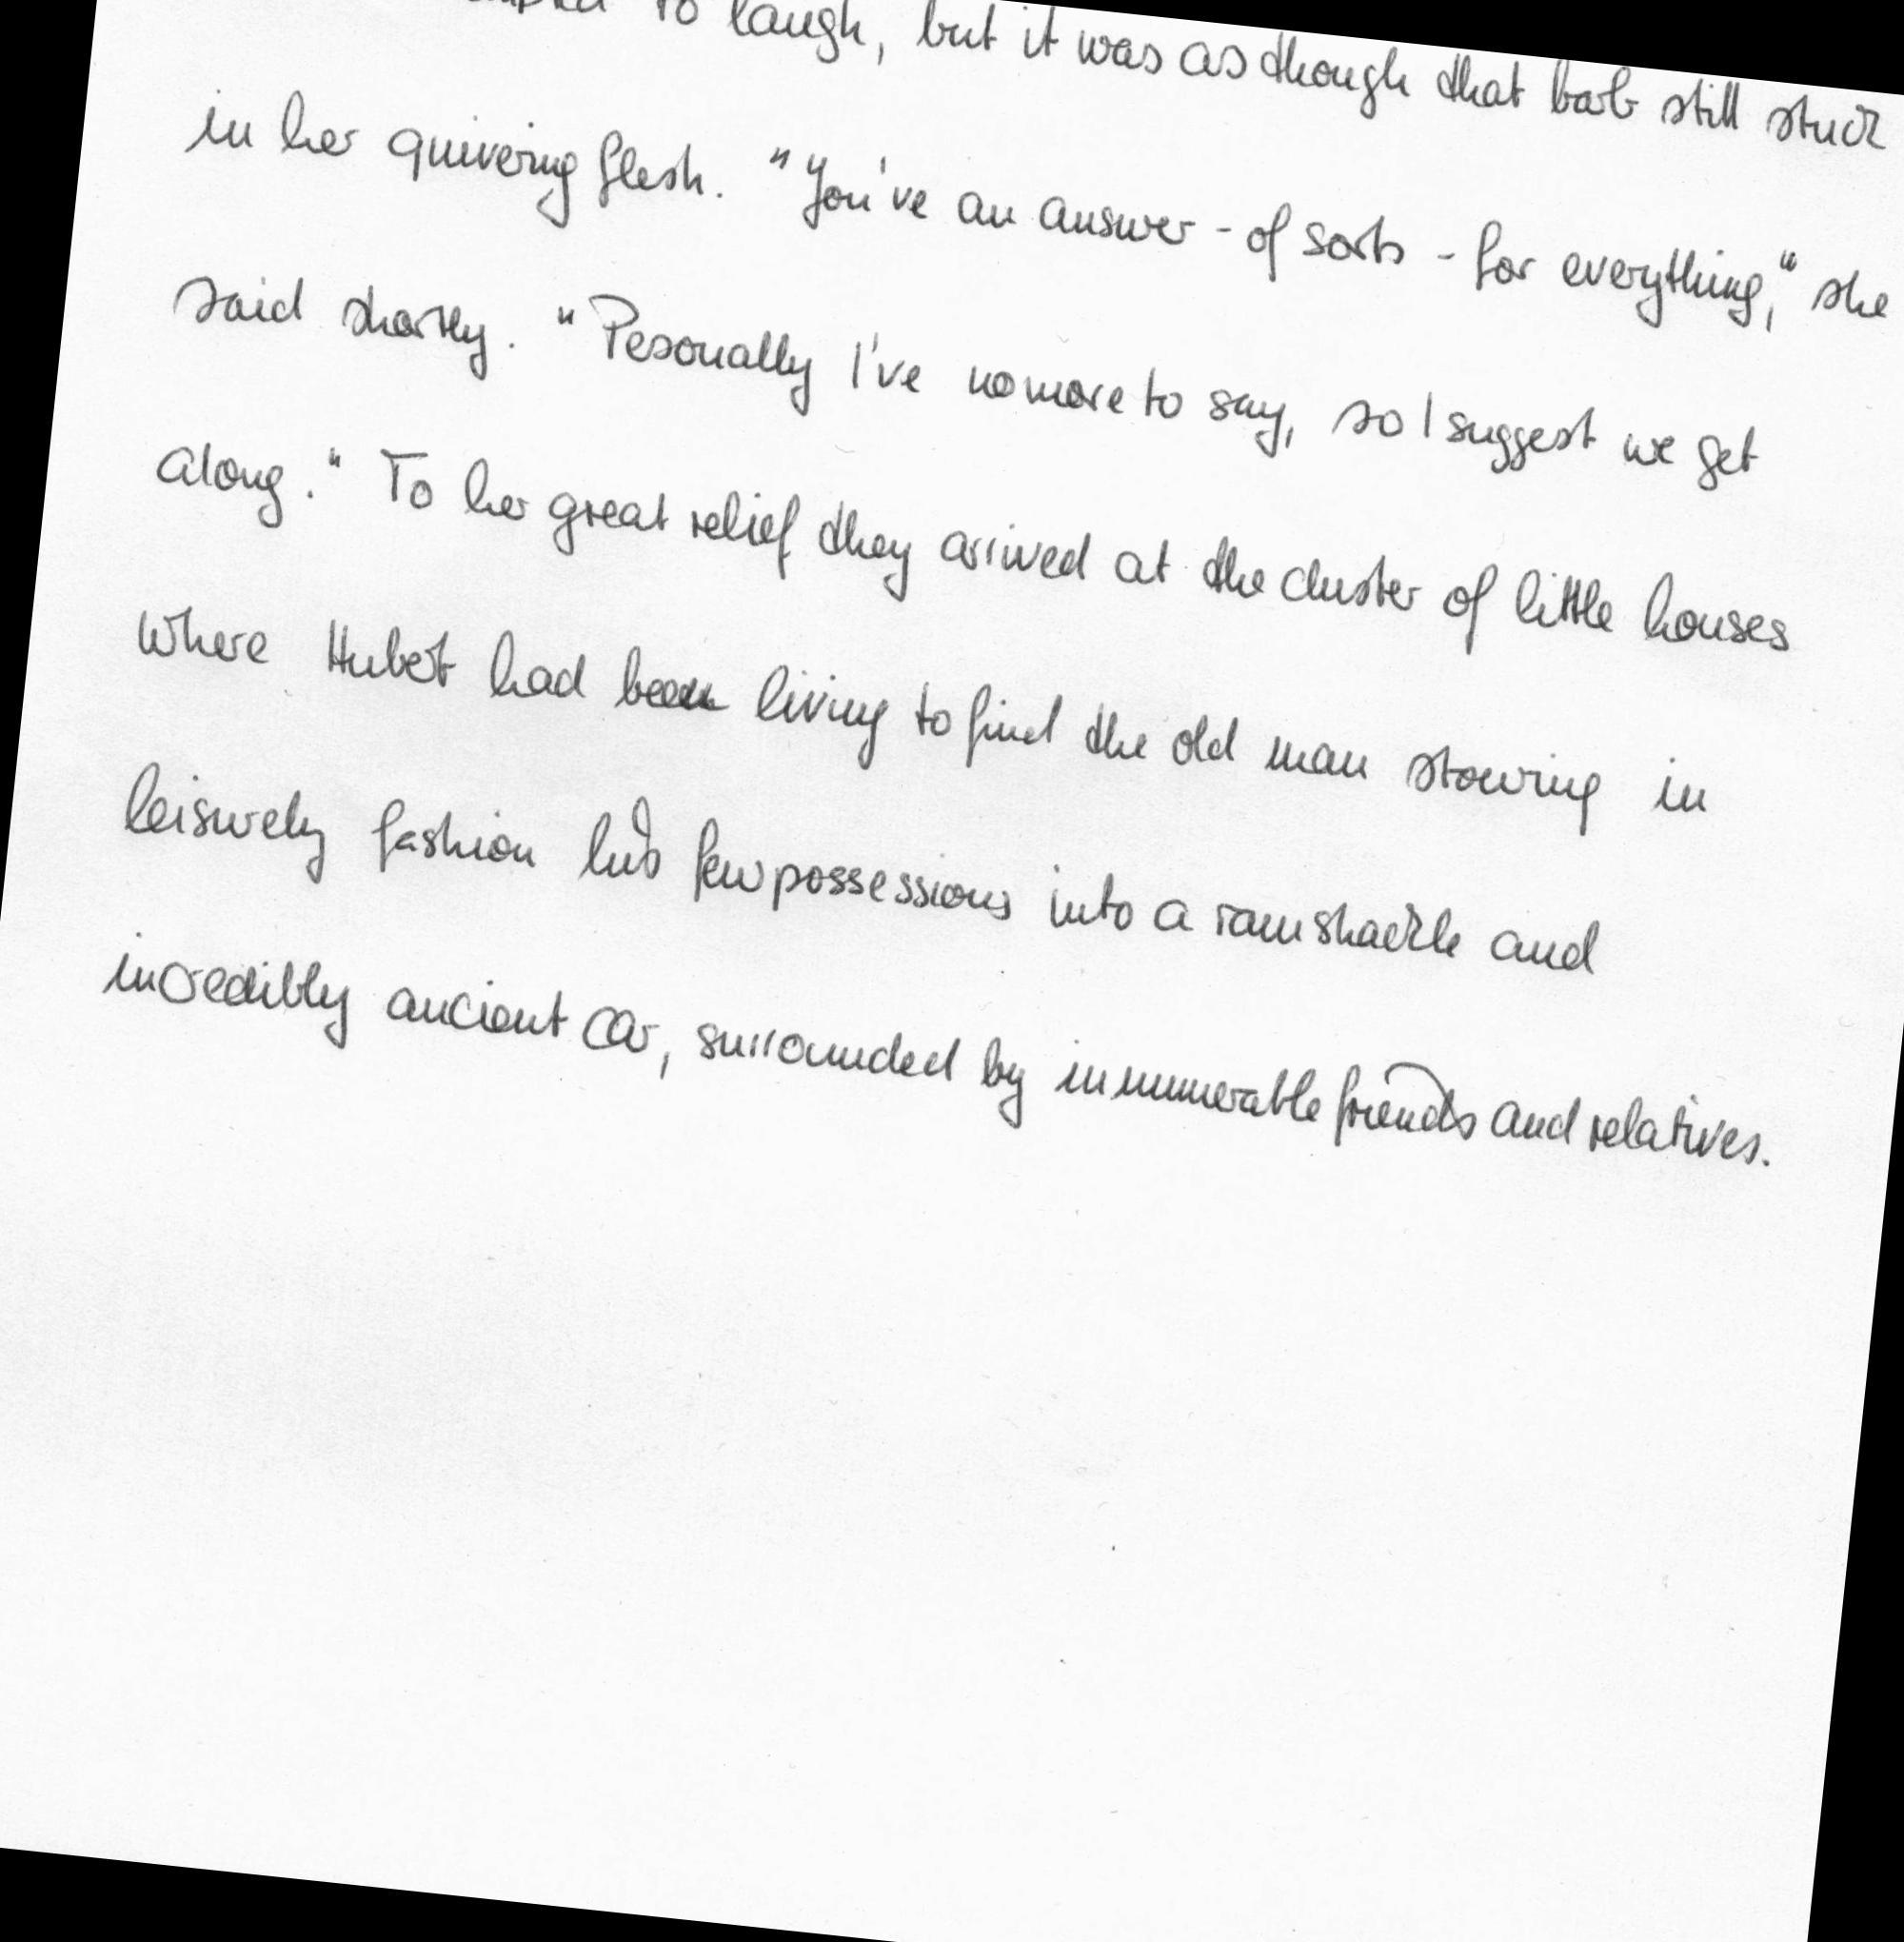 to laugh, but it was as though that barb still stuck
in her quivering flesh. "You've an answer - of sorts - for everything," she
said shortly. "Pesonally I've no more to say, so I suggest we get
along." To her great relief they arrived at the cluster of little houses
where Hubert had been living to find the old man stowing in
leisurely fashion his few possessions into a ramshackle and
incredibly ancient car, surrounded by innumerable friends and relatives.